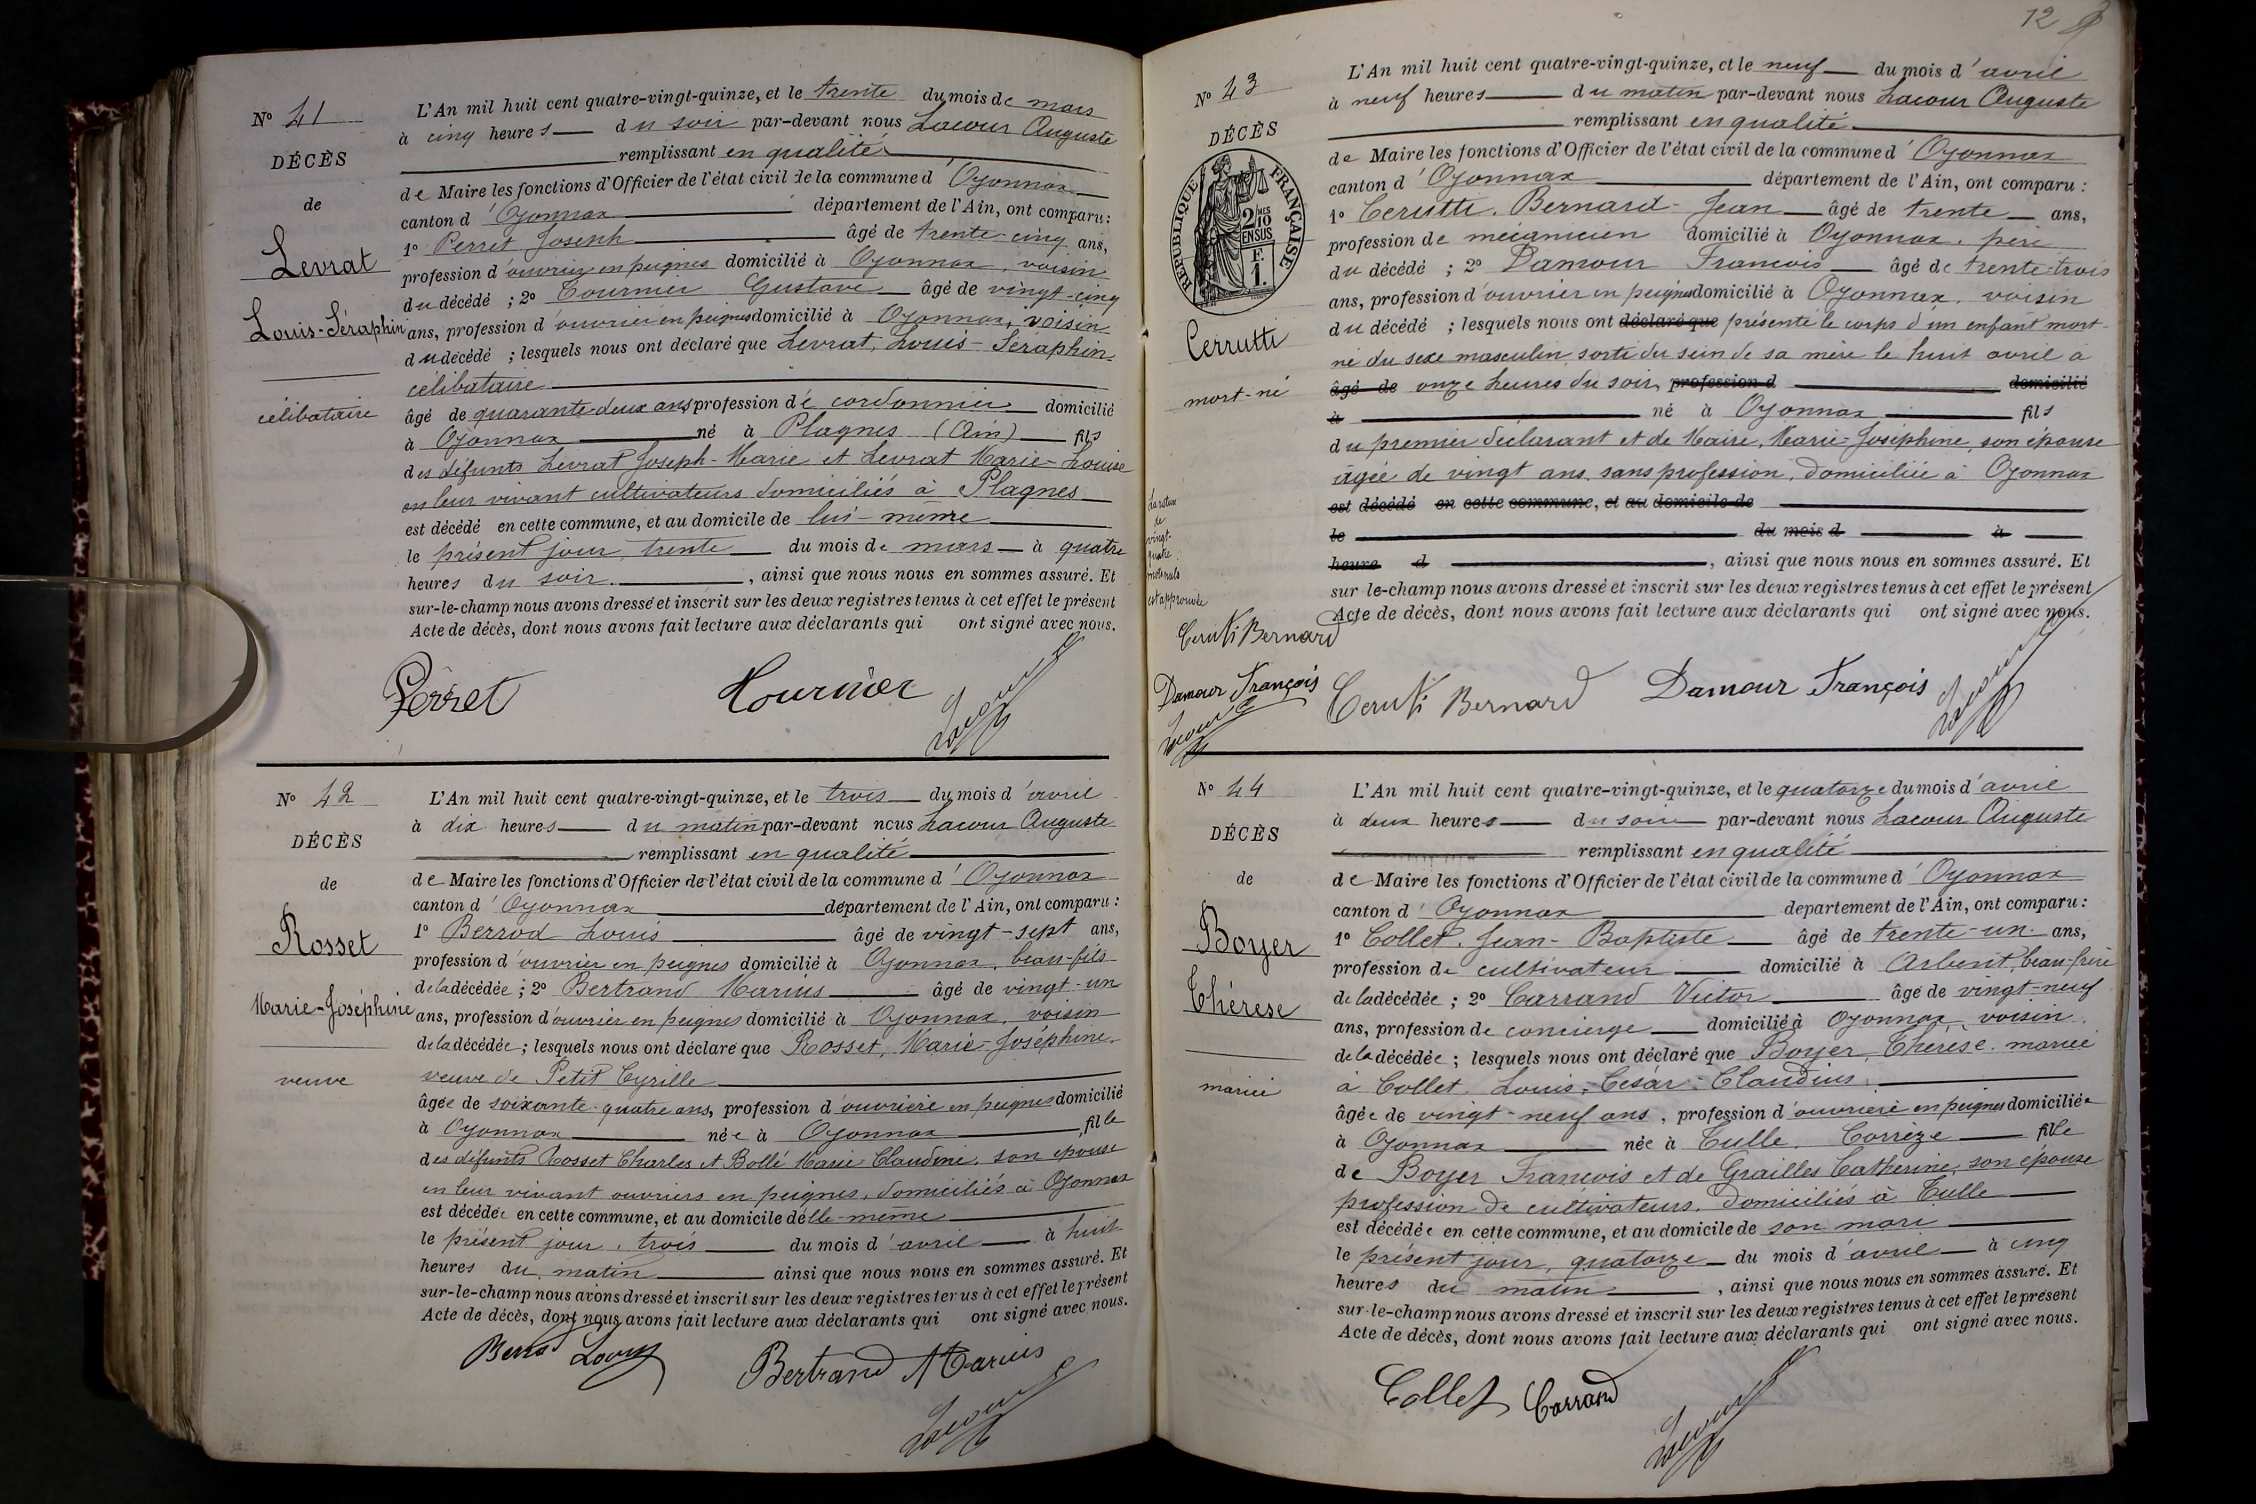 Nº 41
DÉCÈS
de
Levrat
Louis-Séraphin
célibataire
L'An mil huit cent quatre-vingt-quinze, et le trente du mois de mars
à cinq heures du soir par-devant nous Lacour Auguste
remplissant en qualité
de Maire les fonctions d'Officier de l'état civil de la commune d'Oyonnax
canton d'Oyonnax département de l'Ain, ont comparu :
1º Perret Joseph âgé de trente-cinq ans,
profession d'ouvrier en peignes domicilié à Oyonnax, voisin
du décédé ; 2º Tournier Gustave âgé de vingt-cinq
ans, profession d'ouvrier en peignes domicilié à Oyonnax, voisin
du décédé ; lesquels nous ont déclaré que Levrat, Louis-Séraphin,
célibataire
âgé de quarante-deux ans profession de cordonnier domicilié
à Oyonnax né à Plagnes (Ain) fils
des défunts Levrat Joseph-Marie et Levrat Marie-Louise
en leur vivant cultivateurs domiciliés à Plagnes
est décédé en cette commune, et au domicile de lui-même
le présent jour, trente du mois de mars à quatre
heures du soir, ainsi que nous nous en sommes assuré. Et
sur-le-champ nous avons dressé et inscrit sur les deux registres tenus à cet effet le présent
Acte de décès, dont nous avons fait lecture aux déclarants qui ont signé avec nous.
Perret Tournier Lacour
Nº 42
DÉCÈS
de
Rosset
Marie-Joséphine
veuve
L'An mil huit cent quatre-vingt-quinze, et le trois du mois d'avril
à dix heures du matin par-devant nous Lacour Auguste
remplissant en qualité
de Maire les fonctions d'Officier de l'état civil de la commune d'Oyonnax
canton d'Oyonnax département de l'Ain, ont comparu :
1º Berrod Louis âgé de vingt-sept ans,
profession d'ouvrier en peignes domicilié à Oyonnax, beau-fils
de la décédée ; 2º Bertrand Marius âgé de vingt-un
ans, profession d'ouvrier en peignes domicilié à Oyonnax, voisin
de la décédée ; lesquels nous ont déclaré que Rosset, Marie-Joséphine,
veuve de Petit Cyrille
âgée de soixante-quatre ans, profession d'ouvrière en peignes domicilié
à Oyonnax née à Oyonnax, fille
des défunts Rosset Charles et Bollé Marie Claudine, son épouse
en leur vivant ouvriers en peignes, domiciliés à Oyonnax
est décédée en cette commune, et au domicile d'elle-même
le présent jour, trois du mois d'avril à huit
heures du matin ainsi que nous nous en sommes assuré. Et
sur-le-champ nous avons dressé et inscrit sur les deux registres tenus à cet effet le présent
Acte de décès, dont nous avons fait lecture aux déclarants qui ont signé avec nous.
Berrod Louis Bertrand Marius
Lacour
12
Nº 43
DÉCÈS
RÉPUBLIQUE FRANÇAISE
2/10 EN SUS
F. 1.
Cerrutti
mort-né
La rature
de
vingt-
quatre
mots nuls
est approuvée
Ceruti Bernard
Damour François
Lacour
L'An mil huit cent quatre-vingt-quinze, et le neuf du mois d'avril
à neuf heures du matin par-devant nous Lacour Auguste
remplissant en qualité
de Maire les fonctions d'Officier de l'état civil de la commune d'Oyonnax
canton d'Oyonnax département de l'Ain, ont comparu :
1º Cerutti, Bernard-Jean âgé de trente ans,
profession de mécanicien domicilié à Oyonnax, père
du décédé ; 2º Damour Francois âgé de trente-trois
ans, profession d'ouvrier en peignes domicilié à Oyonnax, voisin
du décédé ; lesquels nous ont déclaré que présenté le corps d'un enfant mort-
né du sexe masculin sorti du sein de sa mère le huit avril à
âgé de onze heures du soir, profession d domicilié
à né à Oyonnax fils
du premier déclarant et de Maire, Marie-Joséphine, son épouse
âgée de vingt ans, sans profession, domiciliée à Oyonnax
est décédé en cette commune, et au domicile de
le du mois d à
heure d , ainsi que nous nous en sommes assuré. Et
sur le-champ nous avons dressé et inscrit sur les deux registres tenus à cet effet le présent
Acte de décès, dont nous avons fait lecture aux déclarants qui ont signé avec nous.
Ceruti Bernard Damour François Lacour
Nº 44
DÉCÈS
de
Boyer
Thérèse
mariée
L'An mil huit cent quatre-vingt-quinze, et le quatorze du mois d'avril
à deux heures du soir par-devant nous Lacour Auguste
remplissant en qualité
de Maire les fonctions d'Officier de l'état civil de la commune d'Oyonnax
canton d'Oyonnax département de l'Ain, ont comparu :
1º Collet, Jean-Baptiste âgé de trente-un ans,
profession de cultivateur domicilié à Arbent, beau-frère
de la décédée ; 2º Carrand Victor âgé de vingt-neuf
ans, profession de concierge domicilié à Oyonnax, voisin
de la décédée ; lesquels nous ont déclaré que Boyer, Thérèse, mariée
à Collet, Louis-César-Claudius,
âgée de vingt-neuf ans, profession d'ouvrière en peignes domiciliée
à Oyonnax née à Tulle, Corrèze fille
de Boyer Francois et de Grailles Catherine, son épouse
profession de cultivateurs, domiciliés à Tulle
est décédée en cette commune, et au domicile de son mari
le présent jour, quatorze du mois d'avril à cinq
heures du matin, ainsi que nous nous en sommes assuré. Et
sur-le-champ nous avons dressé et inscrit sur les deux registres tenus à cet effet le présent
Acte de décès, dont nous avons fait lecture aux déclarants qui ont signé avec nous.
Collet Carrand Lacour